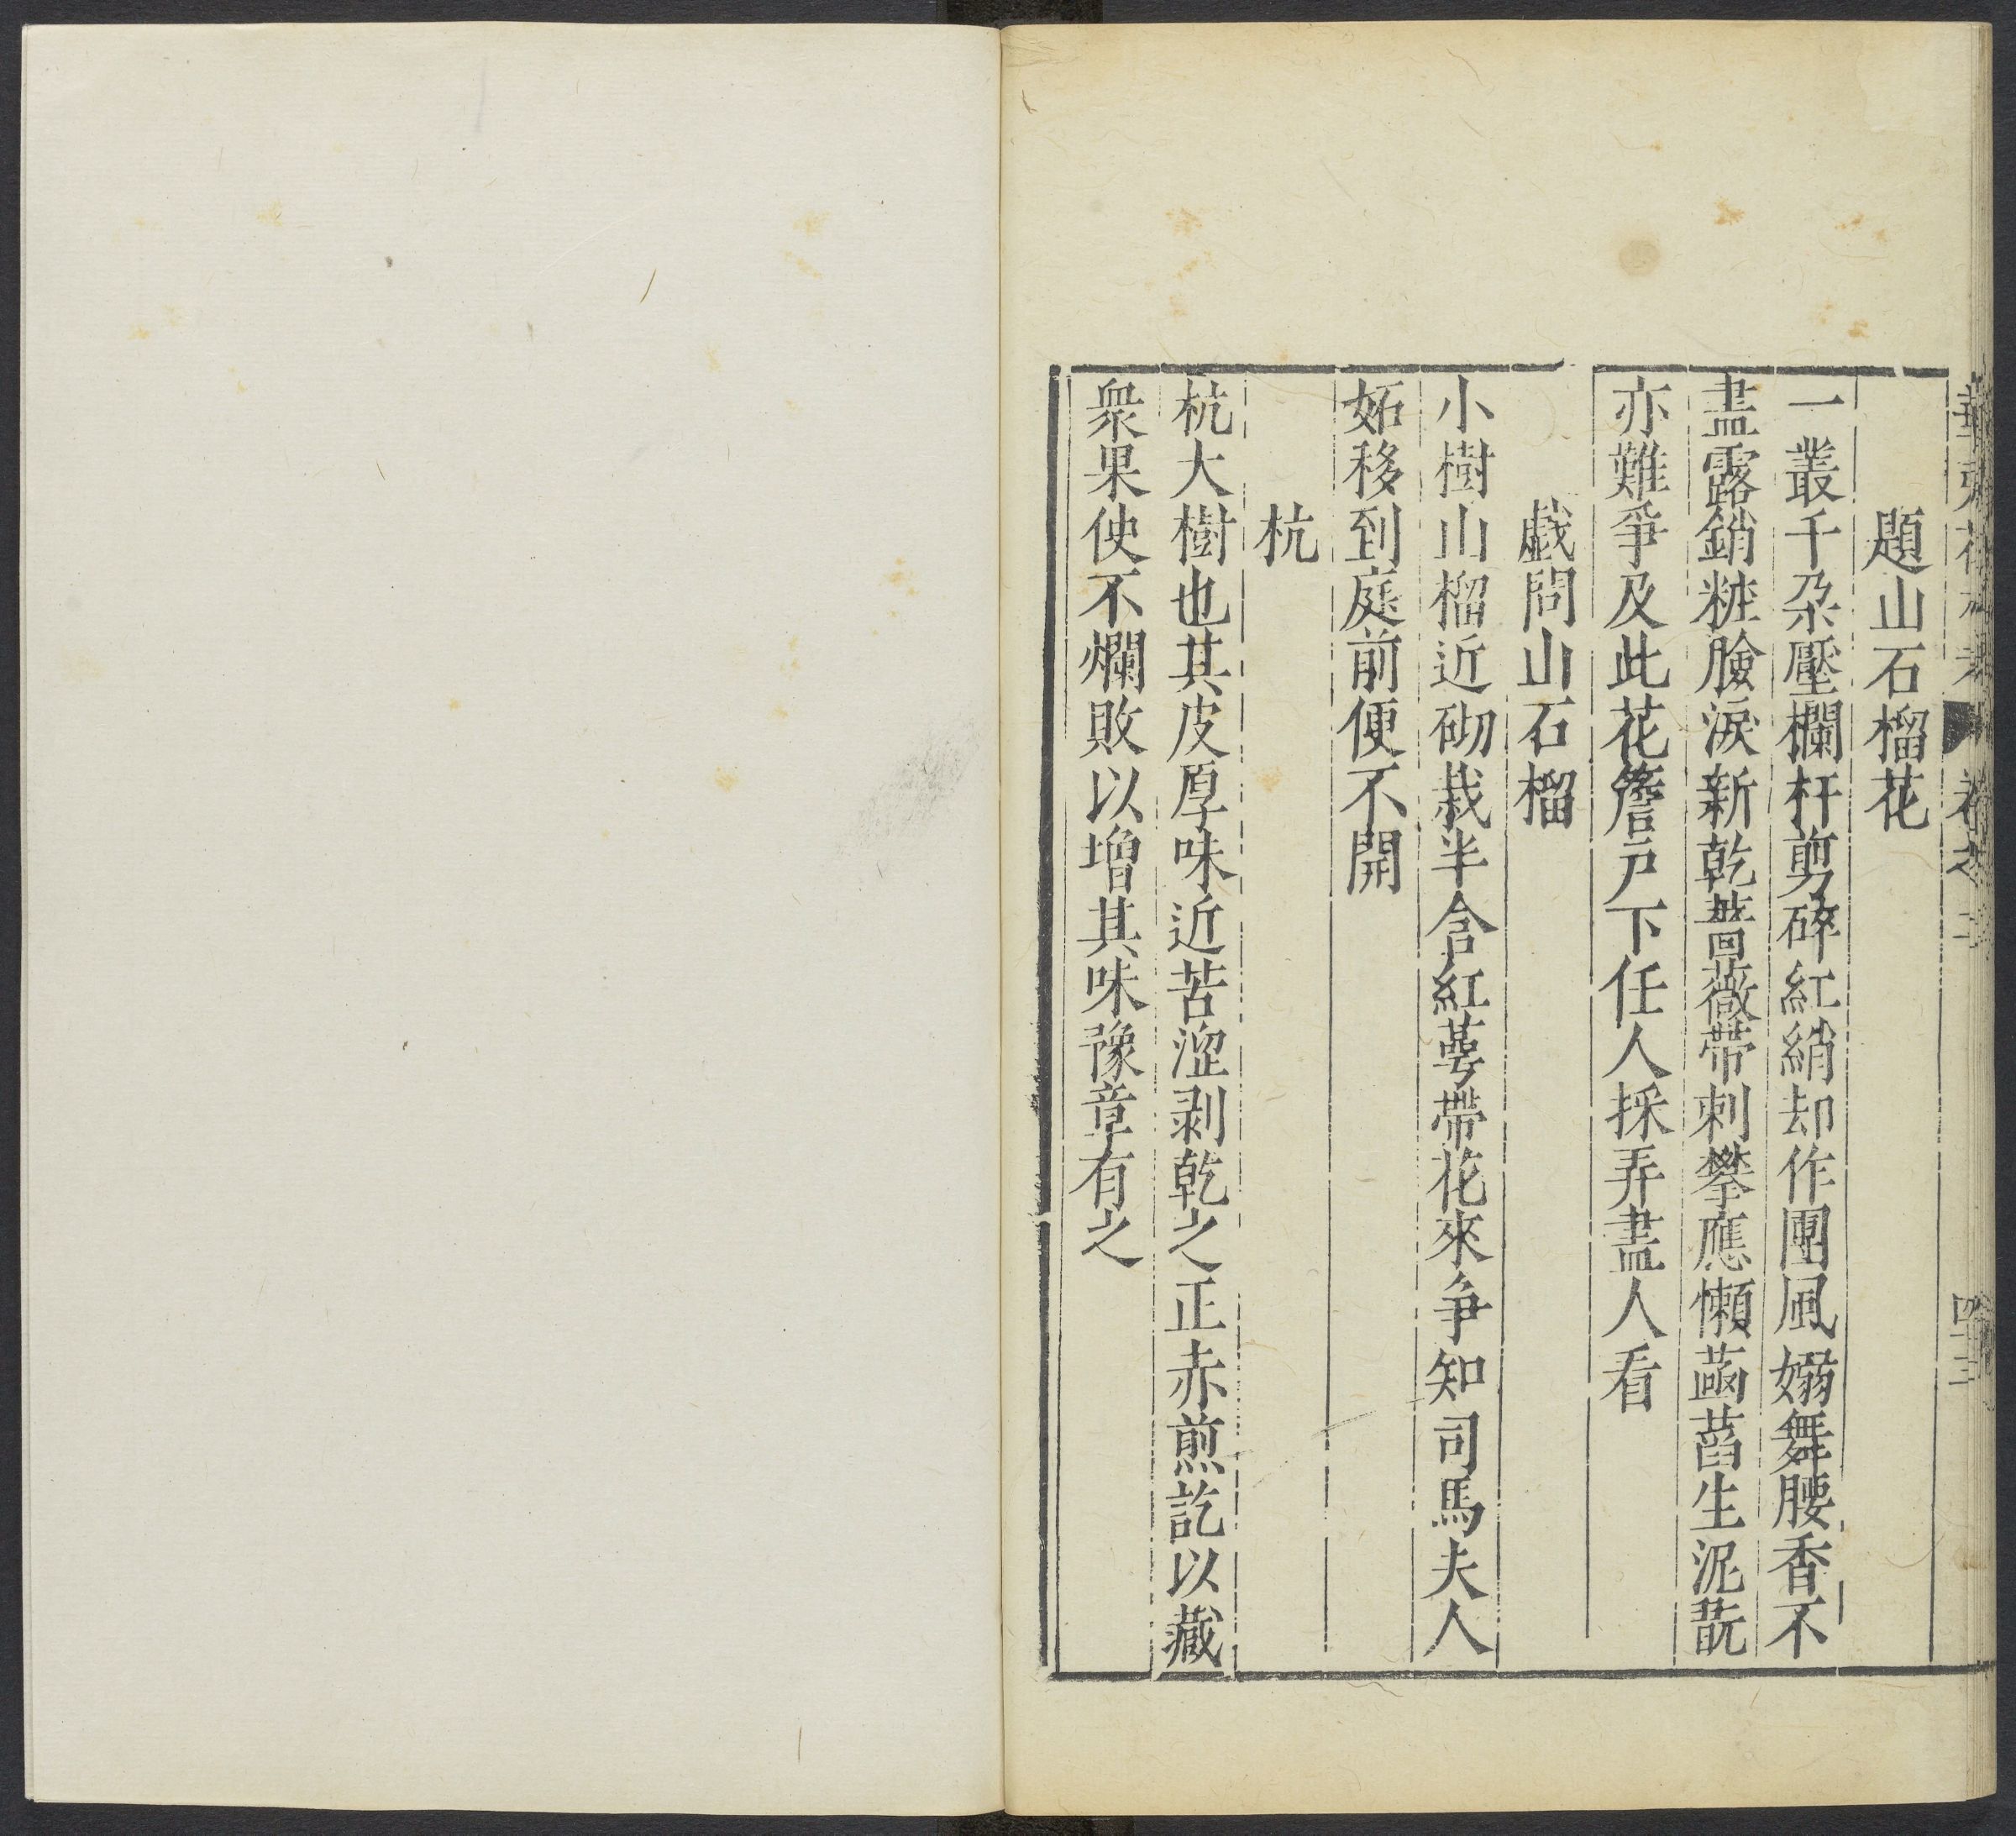 題山石榴花
一叢千朶壓欄杆剪碎紅綃却作團風嫋舞腰香不
盡露銷粧臉淚新乾薔薇帶刺攀應懶菡萏生泥翫
亦難爭及此花簷戶下任人採弄盡人看
戲問山石榴
小樹山榴近砌栽半含紅萼帶花來争知司馬夫人
妬移到庭前便不開
杬
杬大樹也其皮厚味近苦澀剥乾之正赤煎訖以藏
衆果使不爛敗以增其味豫章有之